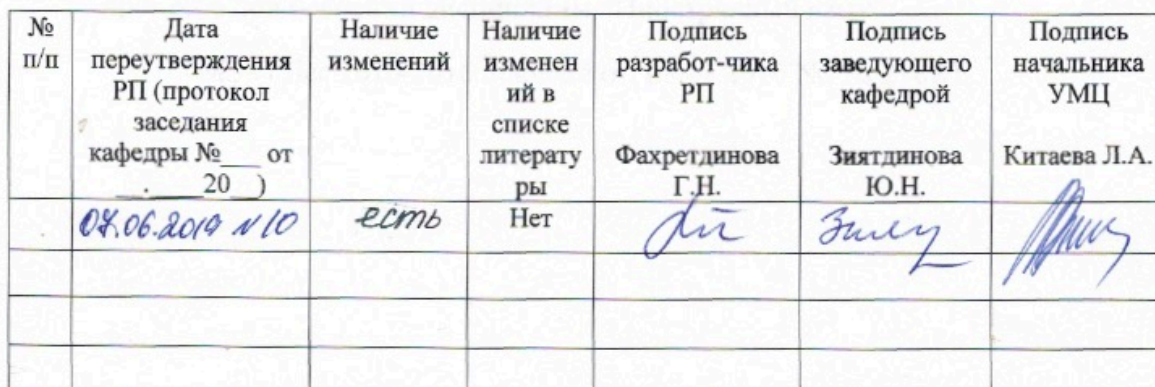 № п/п
Дата переутверждения РП (протокол заседания кафедры №___ от __.____20__)
Наличие изменений
Наличие изменен ий в списке литерату ры
Подпись разработ-чика РП Фахретдинова Г.Н.
Подпись заведующего кафедрой Зиятдинова Ю.Н.
Подпись начальника УМЦ Китаева Л.А.
07.06.2019 №10 есть Нет